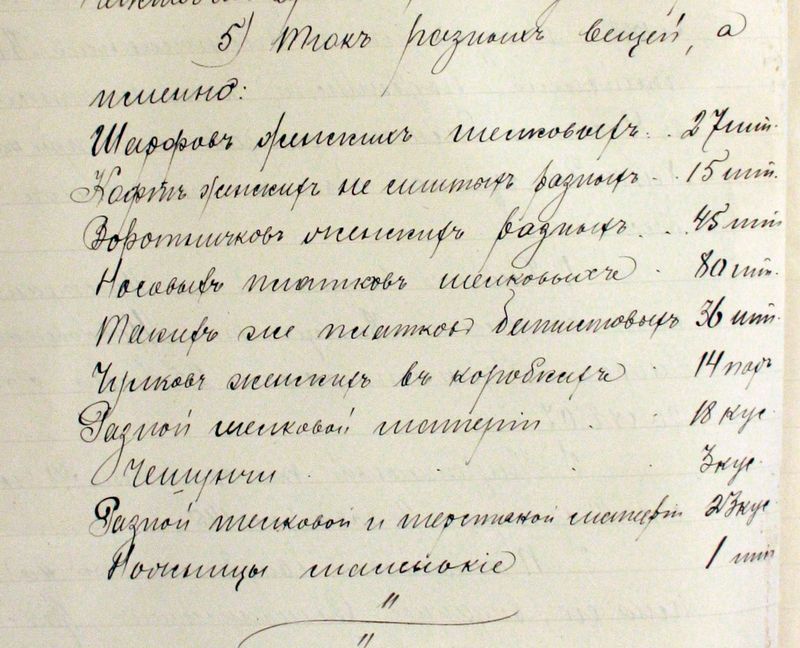 5) Такъ разныхъ вещей, а
именно:
Шарфовъ женскихъ шелковыхъ . . 27 шт.
Кофтъ женскихъ не сшитыхъ разныхъ . . 15 шт.
Воротничковъ женскихъ разныхъ . . 45 шт
Носовыхъ платковъ шелковыхъ . 80 шт.
Такихъ же платковъ батистовыхъ 36 шт.
Чулковъ женскихъ въ коробкахъ 14 паръ
Разной шелковой матеріи . 18 кус.
Чешунчи . . . . 3 кус.
Разной шелковой и шерстяной матеріи 23 кус.
Ножницы маленькіе 1 шт
"
"